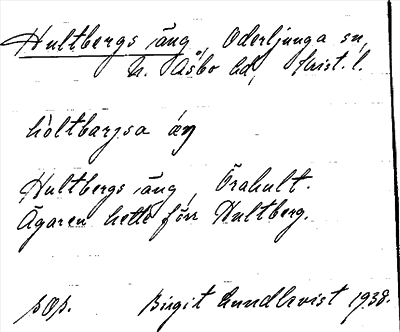 Hultbergs äng, Oderljunga sn,
N. Åsbo hd, Krist. l.
hòltbarjsa áŋ
Hultbergs äng, Örahult.
Ägaren hette förr Hultberg.
pOp. Birgit Lundkvist 1938.